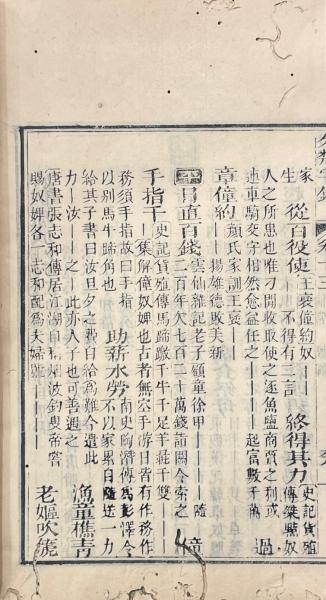 家生 從百役使 王褒僮約奴——不得有二言 終得其力 史記貨殖傳桀黠奴
人之所患也唯刁閒收取使之逐魚鹽商賈之利或
連車騎交守相然愈益任之——起富數千萬 過
章僮約 顏氏家訓王褒——揚雄德敗美新
日直百錢 雲仙雜記老子顧童徐甲——隨
二百年欠七百二十萬錢詣關令索之 僮
手指千 史記貨殖傳馬蹄躈千牛千足羊彘千雙——
—集解僮奴婢也古者無空手游日皆有作務作
務須手指故曰手指以別馬牛蹄角也 助薪水勞 南史陶潛傳為彭澤令不以家累自隨送一力
給其子書曰汝旦夕之費自給為難今遣此
力—汝—之—此亦人子也可善遇之 漁童樵青
唐書張志和傳居江湖自稱煙波釣叟帝嘗
賜奴婢各一志和配為夫婦號—— 老嫗吹篪